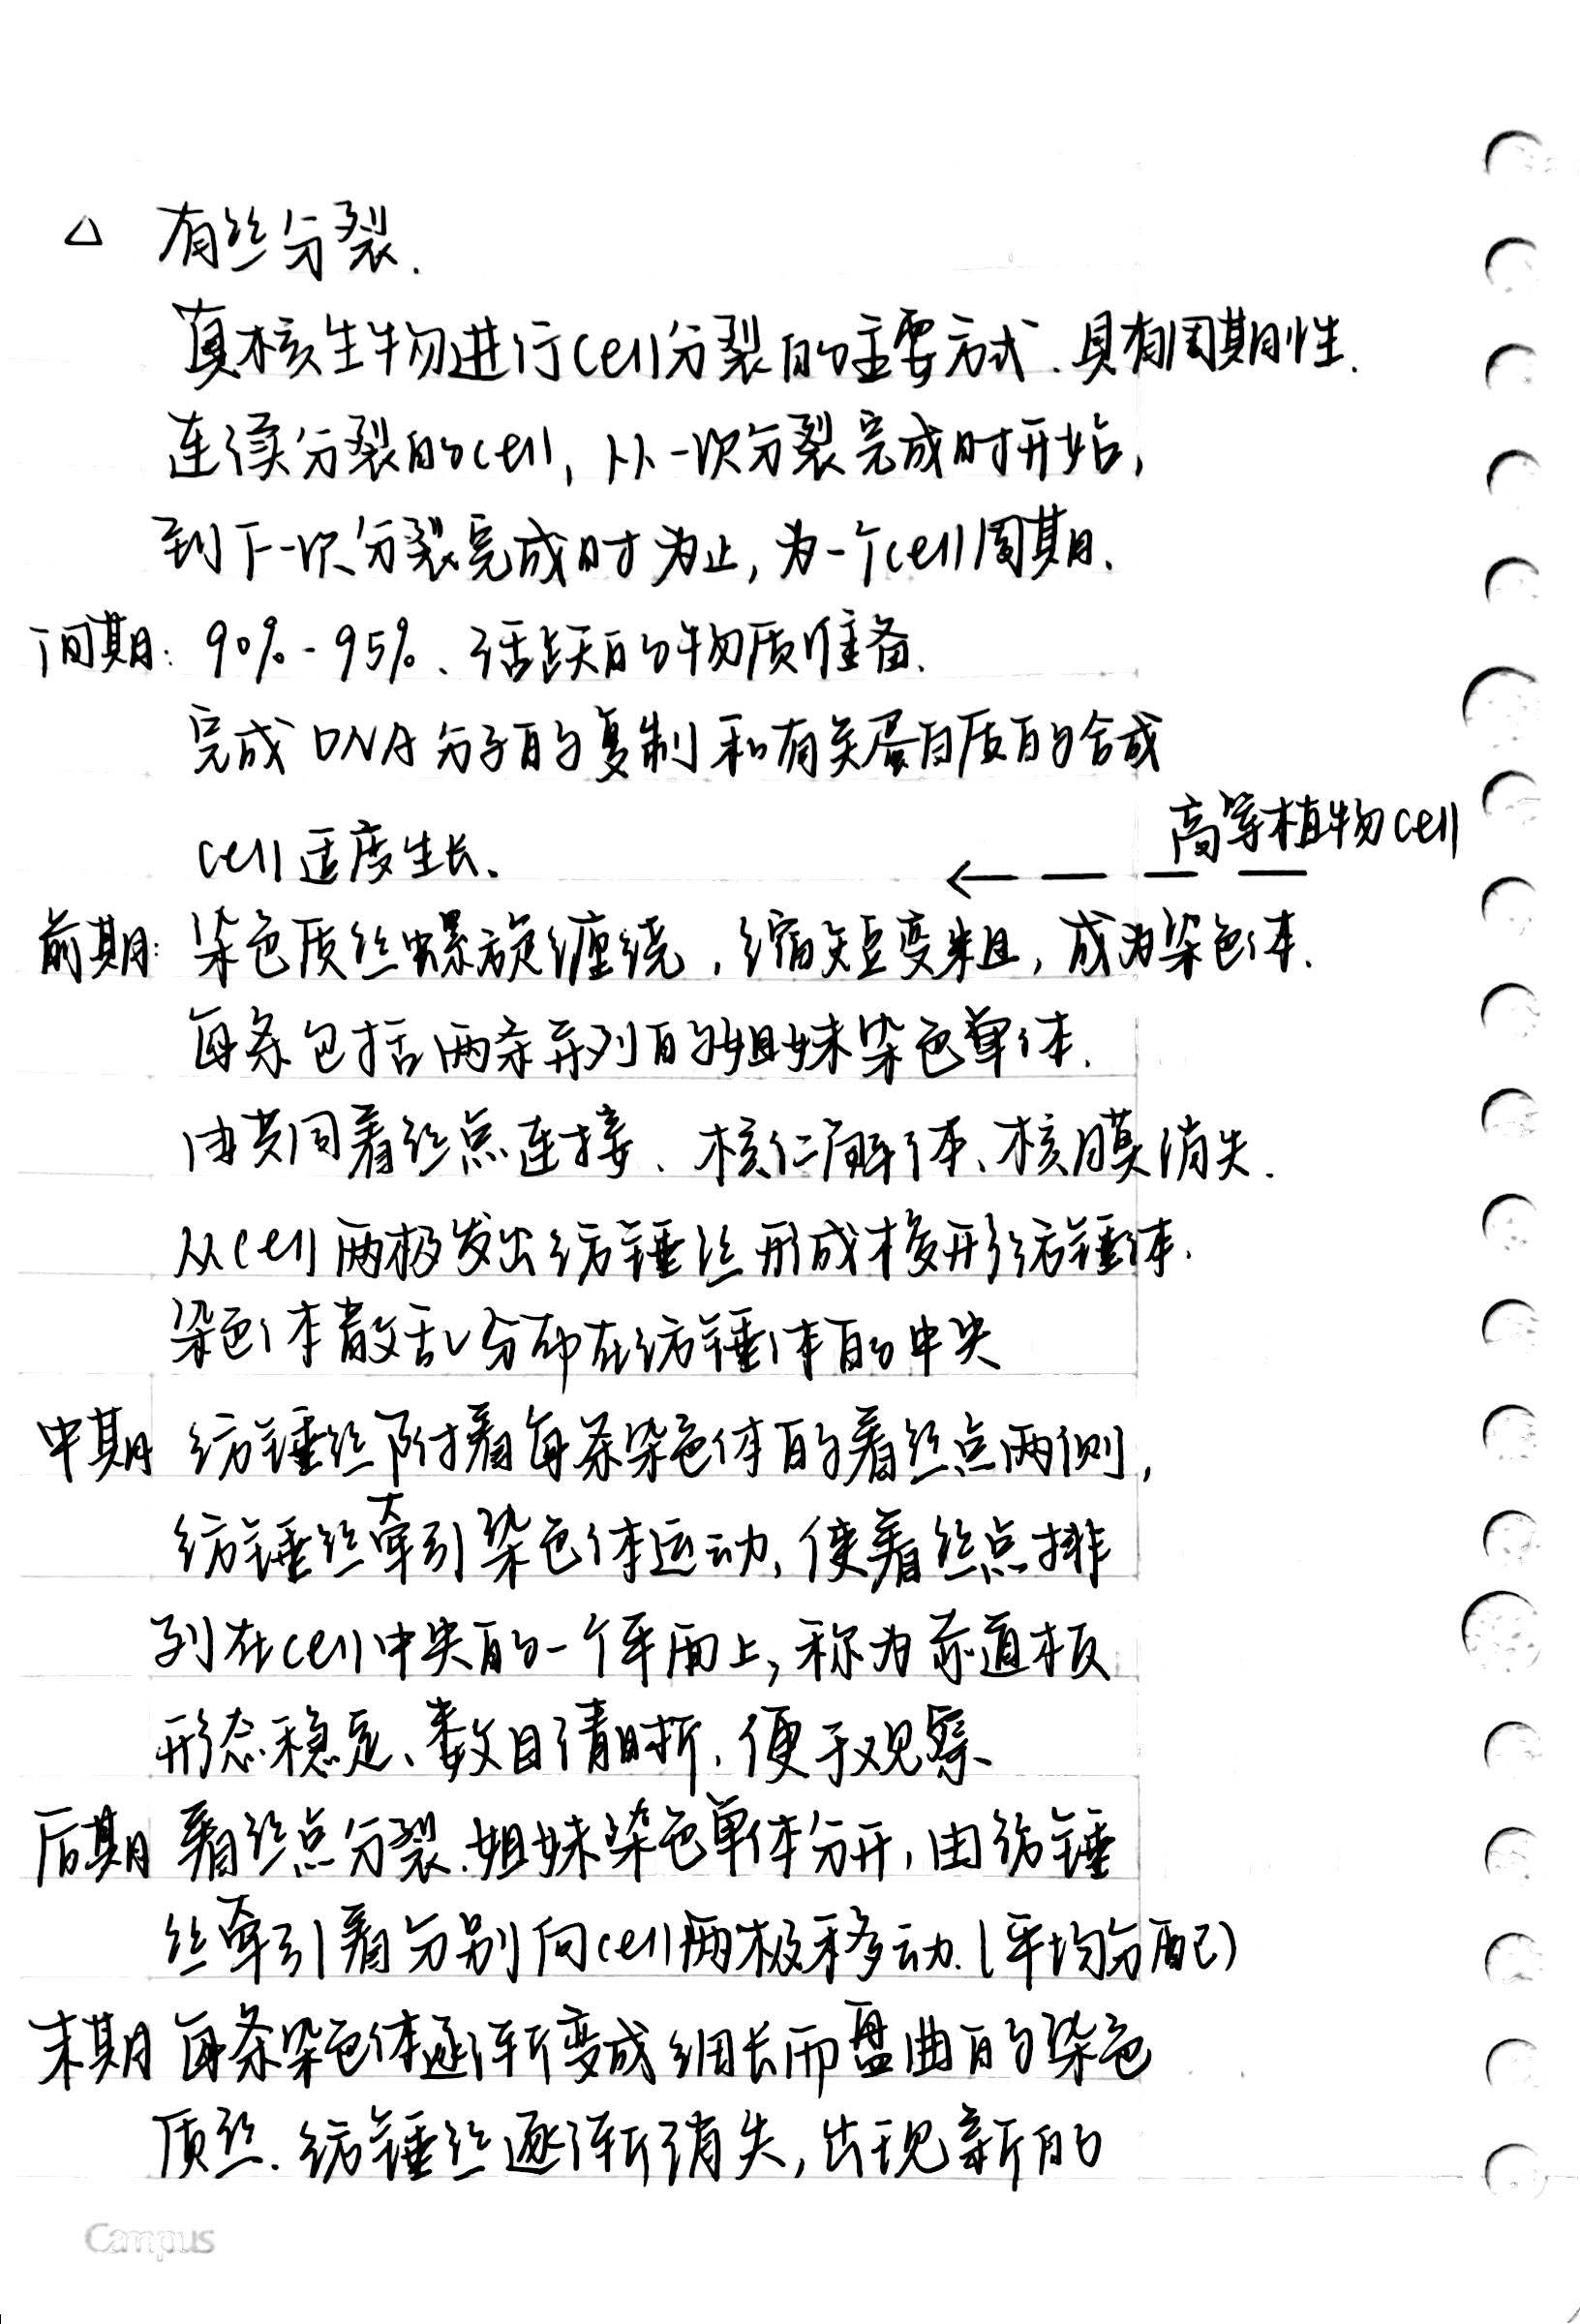 △ 有丝分裂.
真核生物进行cell分裂的主要方式、具有周期性.
连续分裂的cell, 从一次分裂完成时开始,
到下一次分裂完成时为止, 为一个cell周期.
间期: 90%-95%、活跃的物质准备.
完成DNA分子的复制和有关蛋白质的合成
高等植物cell
cell适度生长、
←
前期: 染色质丝螺旋缠绕, 缩短变粗, 成为染色体.
每条包括两条并列的姐妹染色单体.
由共同着丝点连接、核仁解体、核膜消失.
从cell两极发出纺锤丝形成梭形纺锤体.
染色体散乱分布在纺锤体的中央
中期 纺锤丝附着每条染色体的着丝点两侧,
纺锤丝牵引染色体运动, 使着丝点排
列在cell中央的一个平面上, 称为赤道板
形态稳定、数目清晰, 便于观察、
后期 着丝点分裂、姐妹染色单体分开, 由纺锤
丝牵引着分别向cell两极移动.(平均分配)
末期 每条染色体逐渐变成细长而盘曲的染色
质丝. 纺锤丝逐渐消失, 出现新的
Campus